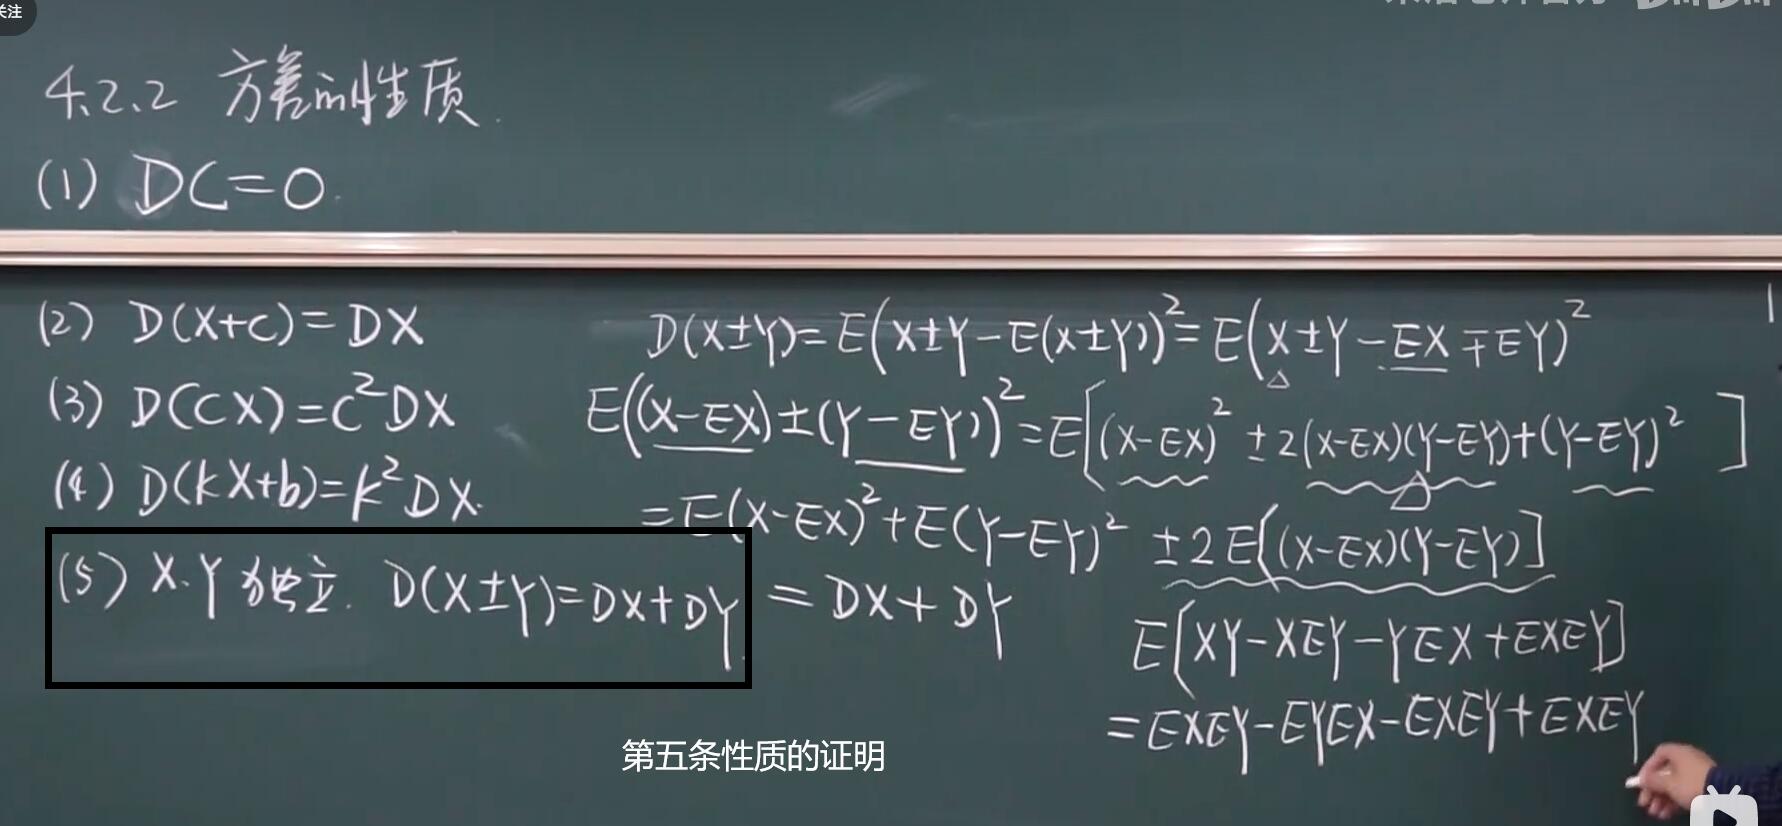 关注
4.2.2 方差的性质.
(1) DC=0.
(2) D(X+C)=DX
(3) D(CX)=C²DX
(4) D(kX+b)=k²DX.
(5) X.Y独立. D(X±Y)=DX+DY.
D(X±Y)=E(X±Y-E(X±Y))²=E(X±Y-EX∓EY)²
E((X-EX)±(Y-EY))²=E[(X-EX)²±2(X-EX)(Y-EY)+(Y-EY)²]
=E(X-EX)²+E(Y-EY)²±2E[(X-EX)(Y-EY)]
=DX+DY
E[XY-XEY-YEX+EXEY]
=EXEY-EYEX-EXEY+EXEY
第五条性质的证明